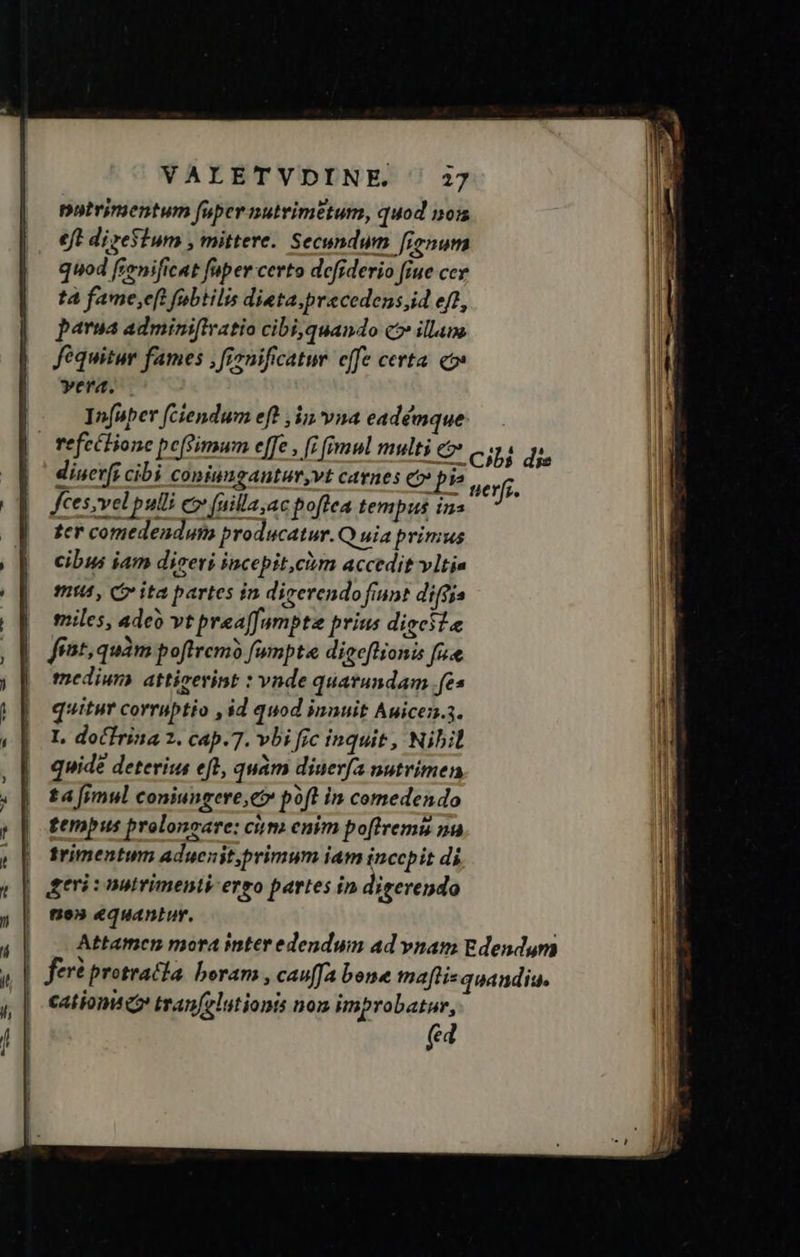 VALETVDINE. 27
nutrimentum ſuper nutrimētum, quod non
eſt digeſtum, mittere. Secundum ſignum
quod ſignificat ſuper certo deſiderio ſiue cer
ta fame, eſt ſubtilis diæta, præcedens, id eſt,
parua adminiſtratio cibi, quando & illam
ſequitur fames, ſignificatur eſſe certa &
vera.
Inſuper ſciendum eſt, in vna eadémque
refectione peſſimum eſſe, ſi ſimul multi &
Cibi di-
diuerſi cibi coniungantur, vt carnes & pi-
uerſi.
ſces, vel pulli & ſuilla, ac poſtea tempus in-
ter comedendum producatur. Quia primus
cibus iam digeri incepit, cùm accedit vlti-
mus, & ita partes in digerendo fiunt diſſi-
miles, adeò vt præaſſumptæ prius digeſtæ
ſint, quàm poſtremò ſumptæ digeſtionis ſuæ
medium attigerint: vnde quarundam ſe-
quitur corruptio, id quod innuit Auicen. 3.
I. doctrina 2. cap. 7. vbi ſic inquit, Nihil
quidē deterius eſt, quàm diuerſa nutrimen
ta ſimul coniungere, & pòſt in comedendo
tempus prolongare: cùm enim poſtremū nu
trimentum aduenit, primum iam incepit di
geri: nutrimenti ergo partes in digerendo
non æquantur.
Attamen mora inter edendum ad vnam
Edendum
ferè protracta horam, cauſſa bonæ maſti-
quandiu.
cationis & tranſglutionis non improbatur,
ſed